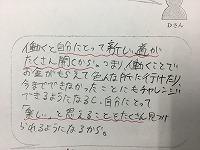 Dさん
働くと自分にとって新しい道が
たくさん開くから。つまり、働くことで
お金がもらえて色んな所に行けたり、
今までできなかったことにもチャレンジ
できるようになるし、自分にとって
「楽しい」と思えることをたくさん見つけ
られるようになるから。